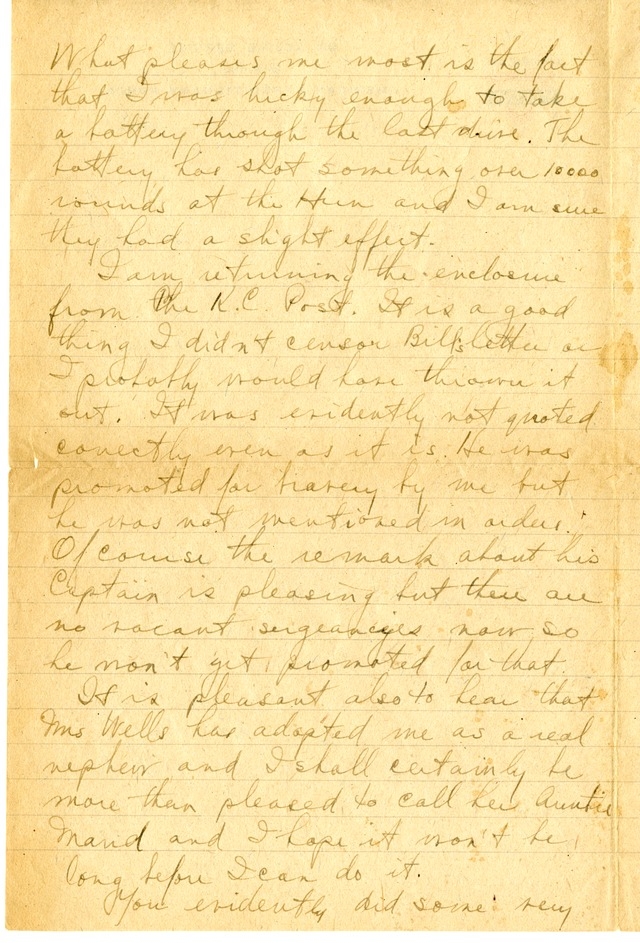 What pleases me most is the fact
that I was lucky enough to take
a battery through the last drive. The
battery has shot something over 10000
rounds at the Hun and I am sure
they had a slight effect.
I am returning the enclosure
from the K.C. Post. It is a good
thing I didn't censor Bill's letter or
I probably would have thrown it
out. It was evidently not quoted
correctly even as it is. He was
promoted for bravery by me but
he was not mentioned in orders.
Of course the remark about his
Captain is pleasing but there are
no vacant sergeancies now so
he won't get promoted for that.
It is pleasant also to hear that
Mrs Wells has adopted me as a real
nephew and I shall certainly be
more than pleased to call her Auntie
Maud and I hope it won't be
long before I can do it.
You evidently did some very